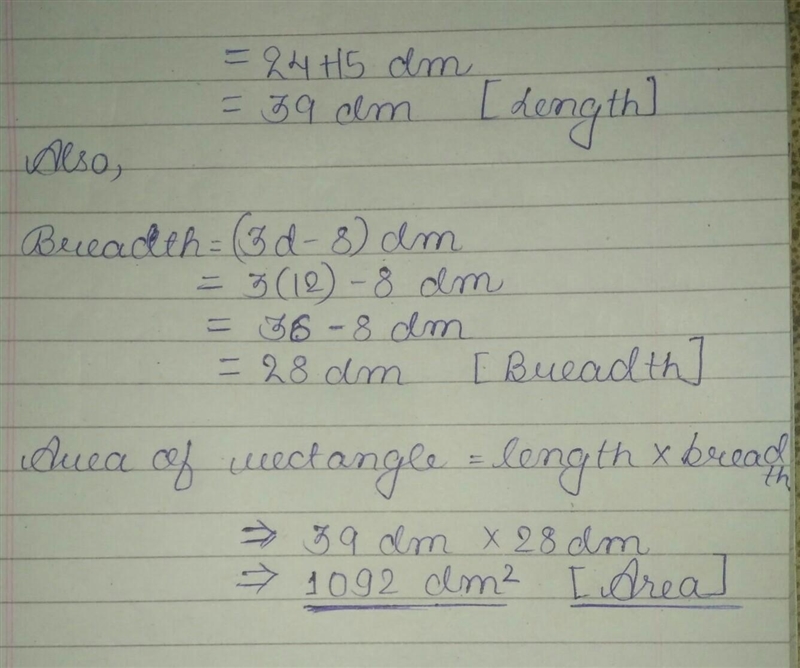 = 24+15 dm
= 39 dm [Length]
Also,
Breadth = (3d - 8) dm
= 3(12) - 8 dm
= 36 - 8 dm
= 28 dm [Breadth]
Area of rectangle = length × bread
th
⇒ 39 dm × 28 dm
⇒ 1092 dm² [Area]